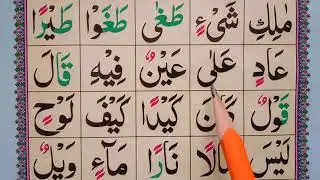 مٰلِكِ شَیْءٍ طَغٰى طَغَوْا طَيْرًا
عَادٍ عَلٰى عَيْنٌ فِيْهِ قَالَ
قَوْلٌ كَانَ كَيْدًا كَيْفَ لَوْحٍ
لَيْسَ نَارًا مَآءٍ وَيْلٌ